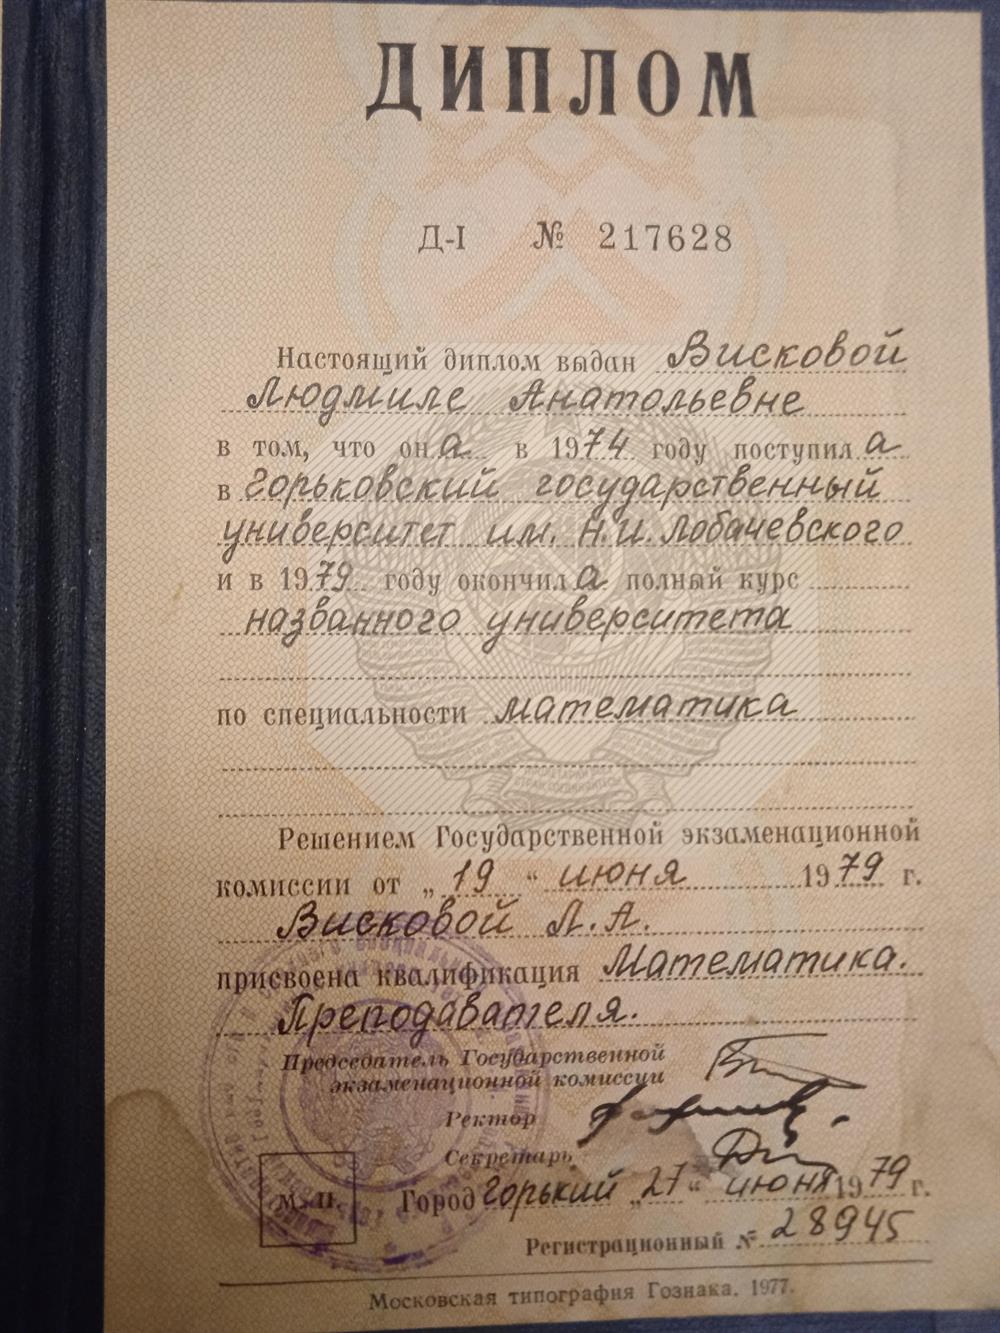 ДИПЛОМ
Д-I № 217628
Настоящий диплом выдан Висковой
Людмиле Анатольевне
в том, что она в 1974 году поступила
в Горьковский государственный
университет им. Н.И. Лобачевского
и в 1979 году окончила полный курс
названного университета
по специальности математика
Решением Государственной экзаменационной
комиссии от „19“ июня 1979 г.
Висковой Л. А.
присвоена квалификация Математика.
Преподавателя.
Председатель Государственной
экзаменационной комиссии
Ректор
Секретарь
М. П. Город Горький „21“ июня 1979 г.
Регистрационный № 28945
Московская типография Гознака. 1977.